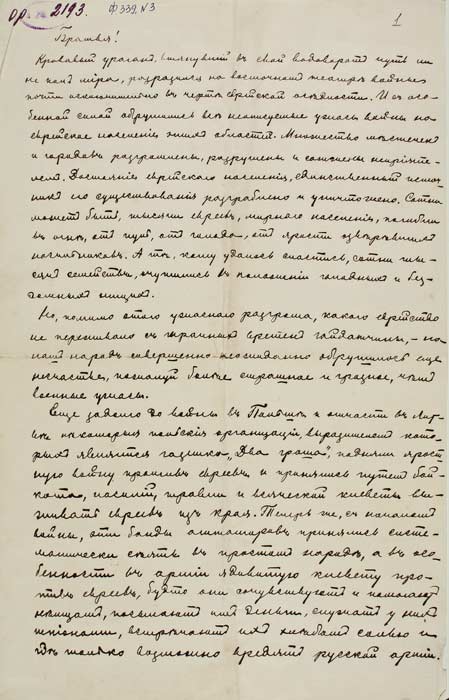 ор. 2193. Ф 339 N3
1
Братья!
Кровавый ураганъ, втянувшій въ свой водоворотъ чуть ли
не полъ міра, разразился на восточномъ театрѣ войны
почти исключительно въ чертѣ еврейской осѣдлости. И съ осо-
бенной силой обрушились всѣ неописуемые ужасы войны на
еврейское населеніе этихъ областей. Множество мѣстечекъ
и городовъ разгромлены, разрушены и сожжены непріяте-
лемъ. Достояніе еврейскаго населенія, единственный источ-
никъ его существованія разграблено и уничтожено. Сотни
можетъ быть, тысячи евреевъ, мирнаго населенія, погибли
въ огнѣ, отъ пуль, отъ голода, отъ ярости озвѣрѣвшихъ
погромщиковъ. А тѣ, кому удалось спастись, сотни ты-
сячъ семействъ, очутились въ положеніи голодныхъ и без-
домныхъ нищихъ.
Но, помимо этого ужаснаго разгрома, какого еврейство
не переживало съ мрачныхъ временъ гайдамчины, – на
нашъ народъ совершенно неожиданно обрушилось еще
несчастье, пожалуй болѣе страшное и грозное, чѣмъ
военные ужасы.
Еще задолго до войны въ Польшѣ и отчасти въ Лит-
вѣ некоторыя польскія организаціи, выразителемъ кото-
рыхъ является газета „Два гроша", подняли ярост-
ную войну противъ евреевъ и принялись путемъ бой-
кота, насилій, травли и всяческой клеветы вы-
живать евреевъ изъ края. Теперь же, съ началомъ
войны, эти банды агитаторовъ принялись систе-
матически сѣять въ простомъ народѣ, а въ осо-
бенности въ арміи ядовитую клевету про-
тивъ евреевъ, будто они сочувствуютъ и помогаютъ
нѣмцамъ, посылаютъ имъ деньги, служатъ у нихъ
шпіонами, встрѣчаютъ ихъ хлѣбомъ солью и
гдѣ только возможно вредятъ русской арміи.